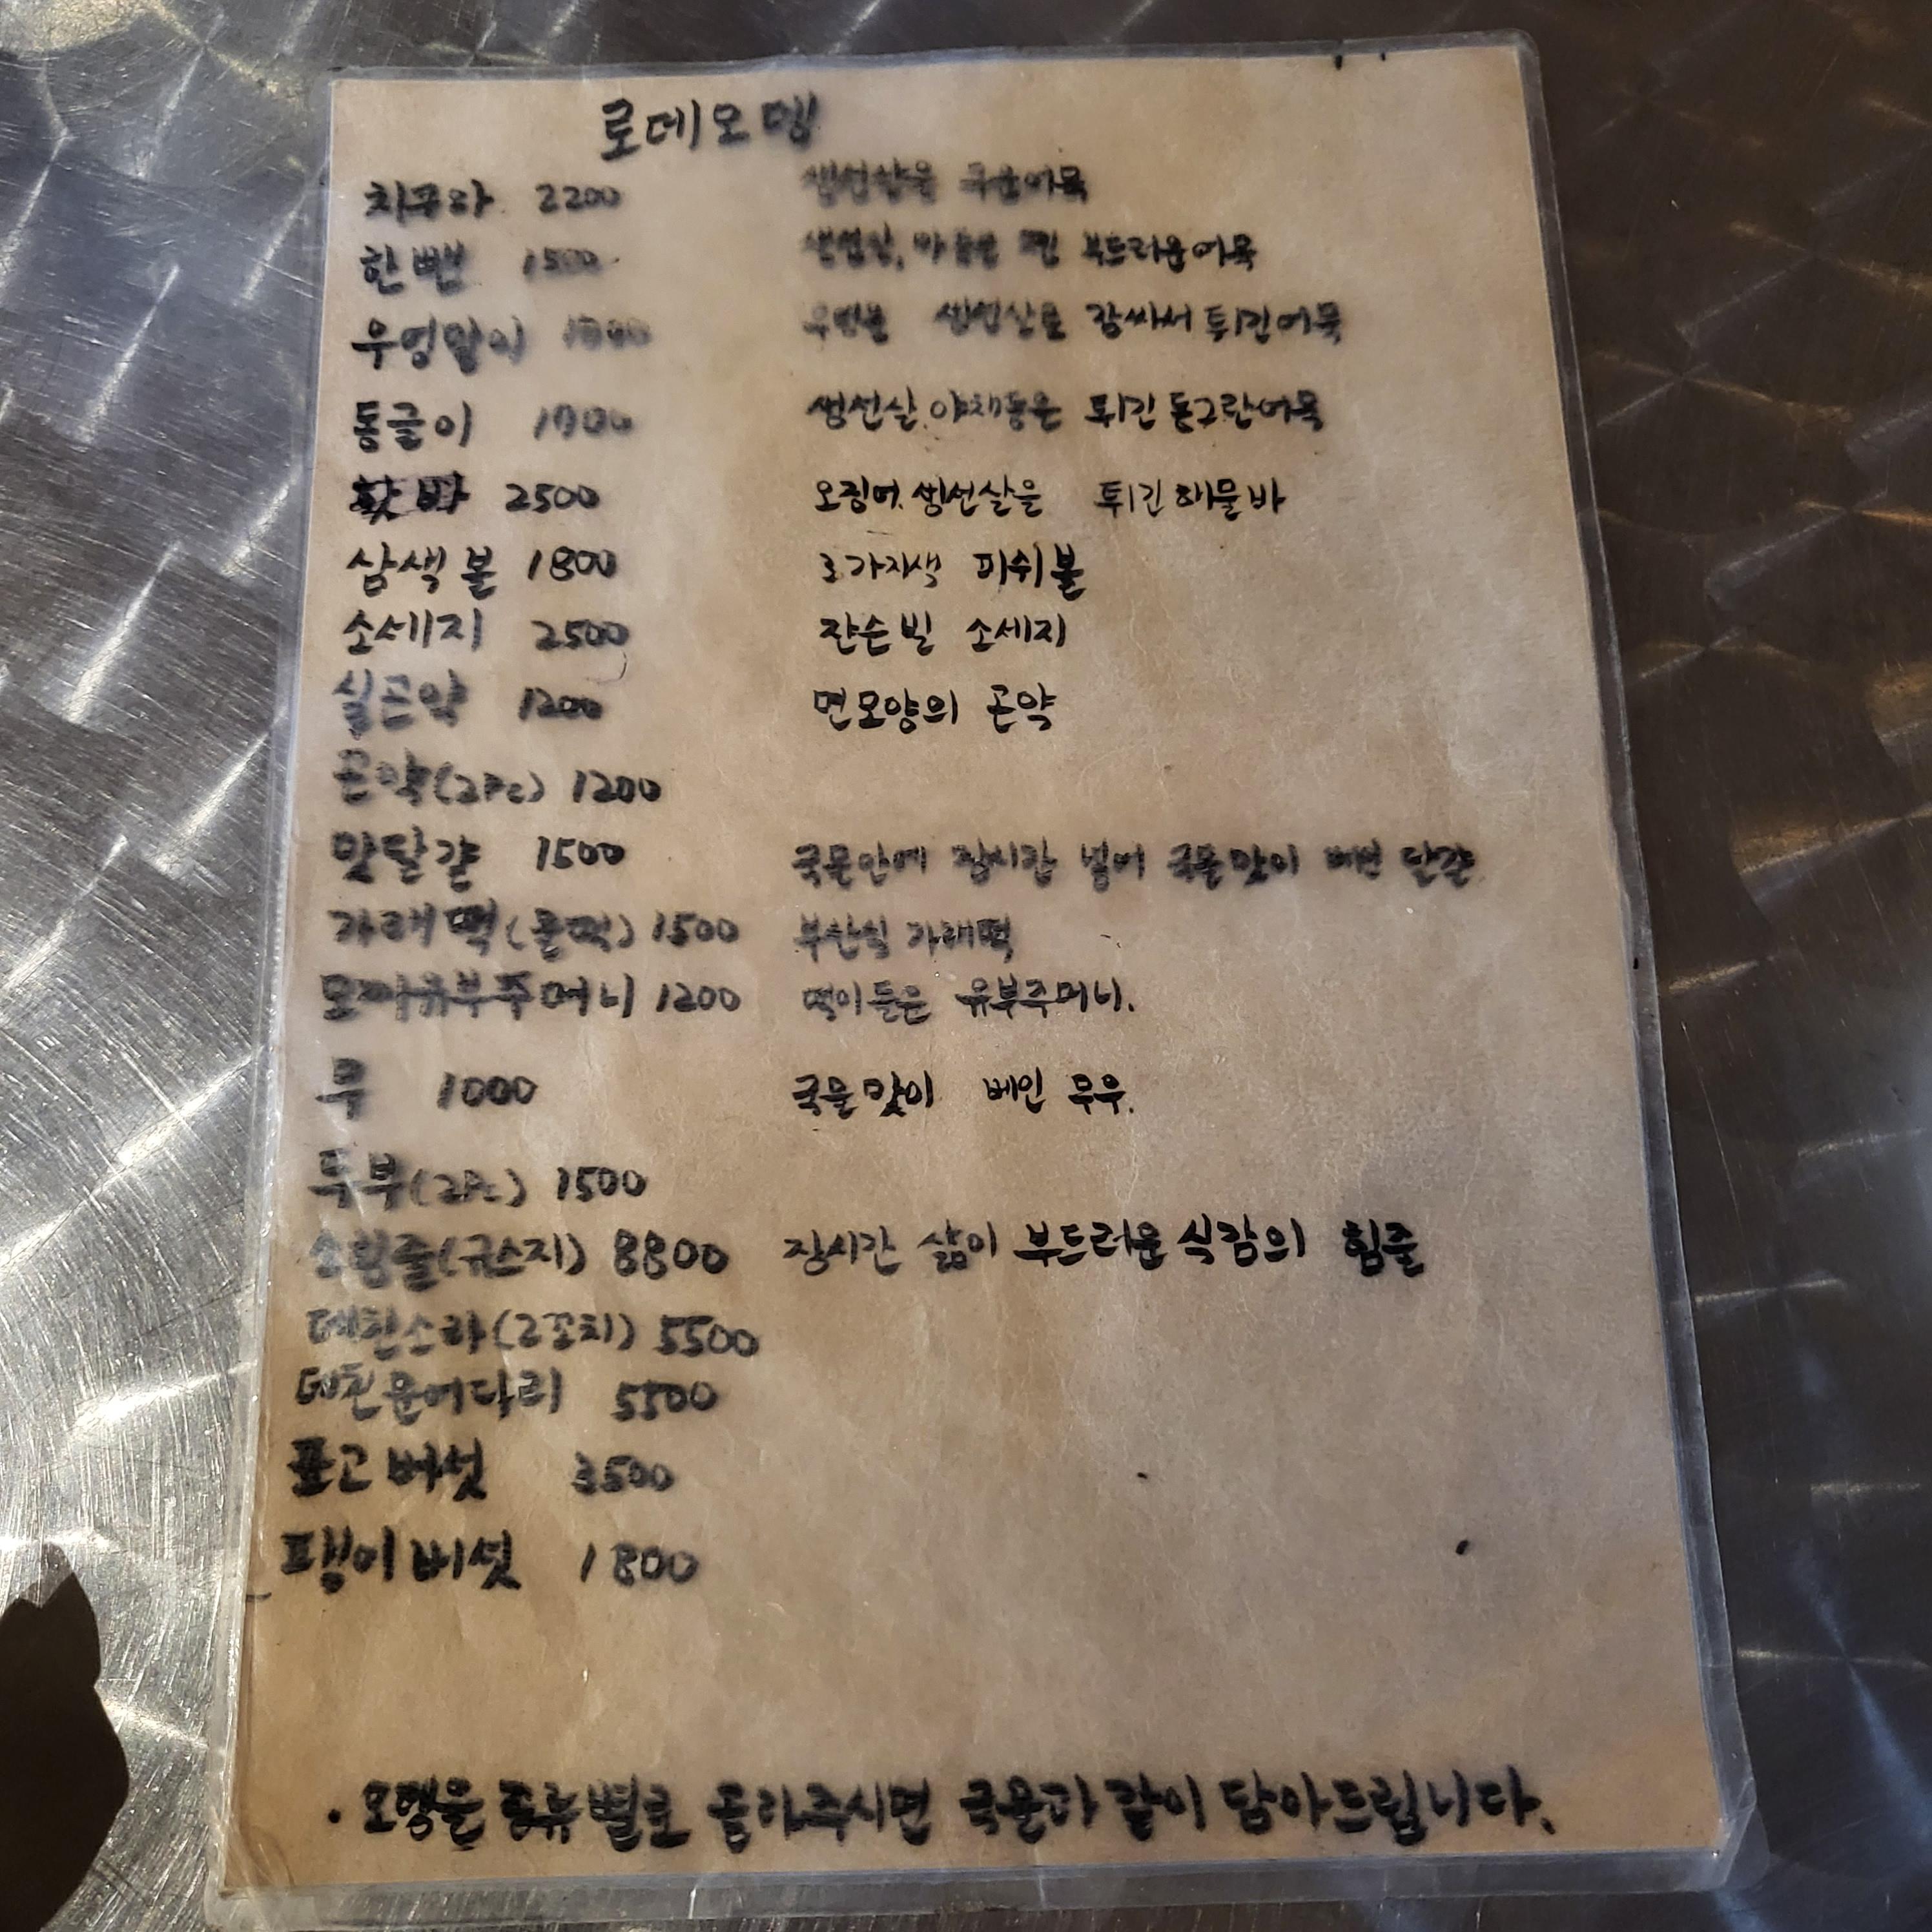 로데오뎅
치쿠와 2200 생선살을 구운어묵
한뻰 1500 생선살, 마를 찐 부드러운어묵
우엉말이 생선살로 감싸서 튀긴어묵
동글이 생선살.야채등을 튀긴 동그란어묵
핫바 2500 오징어.생선살을 튀긴해물바
삼색볼 1800 3가지색 피쉬볼
소세지 2500 쟌슨빌 소세지
실곤약 1200 면모양의 곤약
곤약(2Pc) 1200
맛달걀 1500 국물안에 장시간 넣어 국물맛이 베인 달걀
가래떡(물떡) 1500 부산식 가래떡
모찌유부주머니 1200 떡이들은 유부주머니.
무 1000 국물맛이 베인 무우.
두부(2Pc) 1500
소힘줄(규스지) 8800 장시간 삶이 부드러운식감의 힘줄
데친소라(2꼬치) 5500
데친문어다리 5500
표고버섯 3500
팽이버섯 1800
· 오뎅을 종류별로 골라주시면 국물과 같이 담아드립니다.